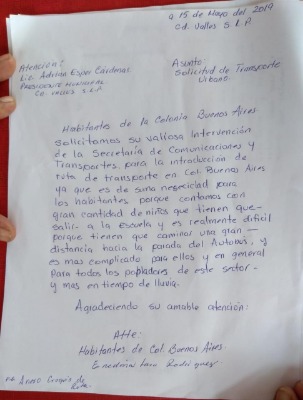 a 15 de Mayo del 2019
Cd. Valles S.L.P.
Atención:
Lic. Adrian Esper Cárdenas
PRESIDENTE MUNICIPAL
CD. VALLES S.L.P.
Asunto
Solicitud de Transporte
Urbano.
Habitantes de la Colonia Buenos Aires
solicitamos su valiosa Intervención
de la Secretaría de Comunicaciones y
Transportes, para la introducción de
ruta de transporte en Col. Buenos Aires
ya que es de suma necesidad para
los habitantes, porque contamos con
gran cantidad de niños que tienen que-
salir a la Escuela y es realmente dificil
porque tienen que caminar una gran —
distancia hacia la parada del Autobus, y
es mas complicado para ellos y en general
Para todos los pobladores de este sector -
y mas en tiempo de lluvia.
Agradeciendo su amable atención:
Atte:
Habitantes de Col. Buenos Aires.
Rodriguez
Anexo Croquis de
Ruta.